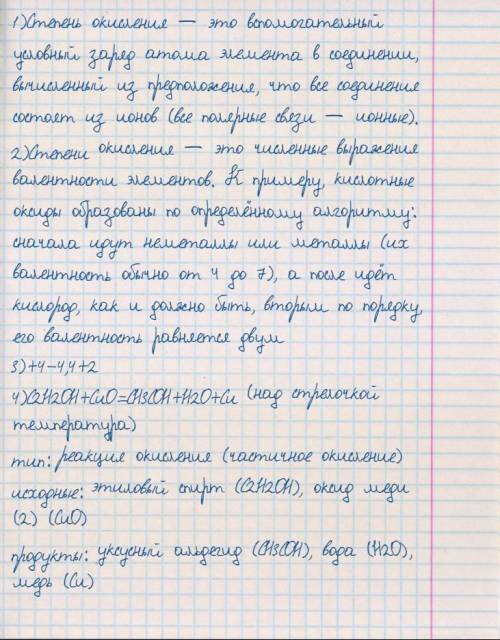 1)Степень окисления — это вспомогательный
условный заряд атома элемента в соединении,
вычисленный из предположения, что все соединения
состоят из ионов (все полярные связи — ионные).
2)Степени окисления — это численные выражения
валентности элементов. К примеру, кислотные
оксиды образованы по определённому алгоритму:
сначала идут неметаллы или металлы (их
валентность обычно от 4 до 7), а после идёт
кислород, как и должно быть, вторым по порядку,
его валентность равняется двум
3)+4-4,4+2
4)C2H2OH+CuO=CH3COH+H2O+Cu (над стрелочкой
температура)
тип: реакция окисления (частичное окисление)
исходные: этиловый спирт (C2H2OH), оксид меди
(2) (CuO)
продукты: уксусный альдегид (CH3COH), вода (H2O),
медь (Cu)